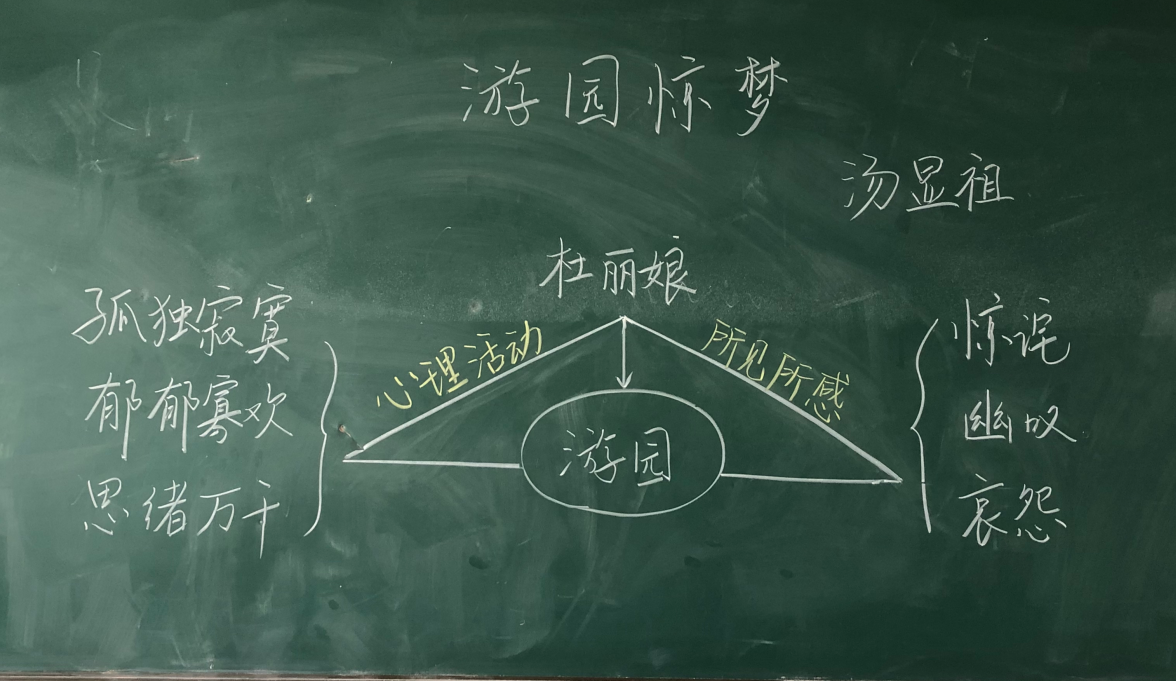 游园惊梦
汤显祖
杜丽娘
心理活动
所见所感
游园
孤独寂寞
郁郁寡欢
思绪万千
惊诧
幽叹
哀怨